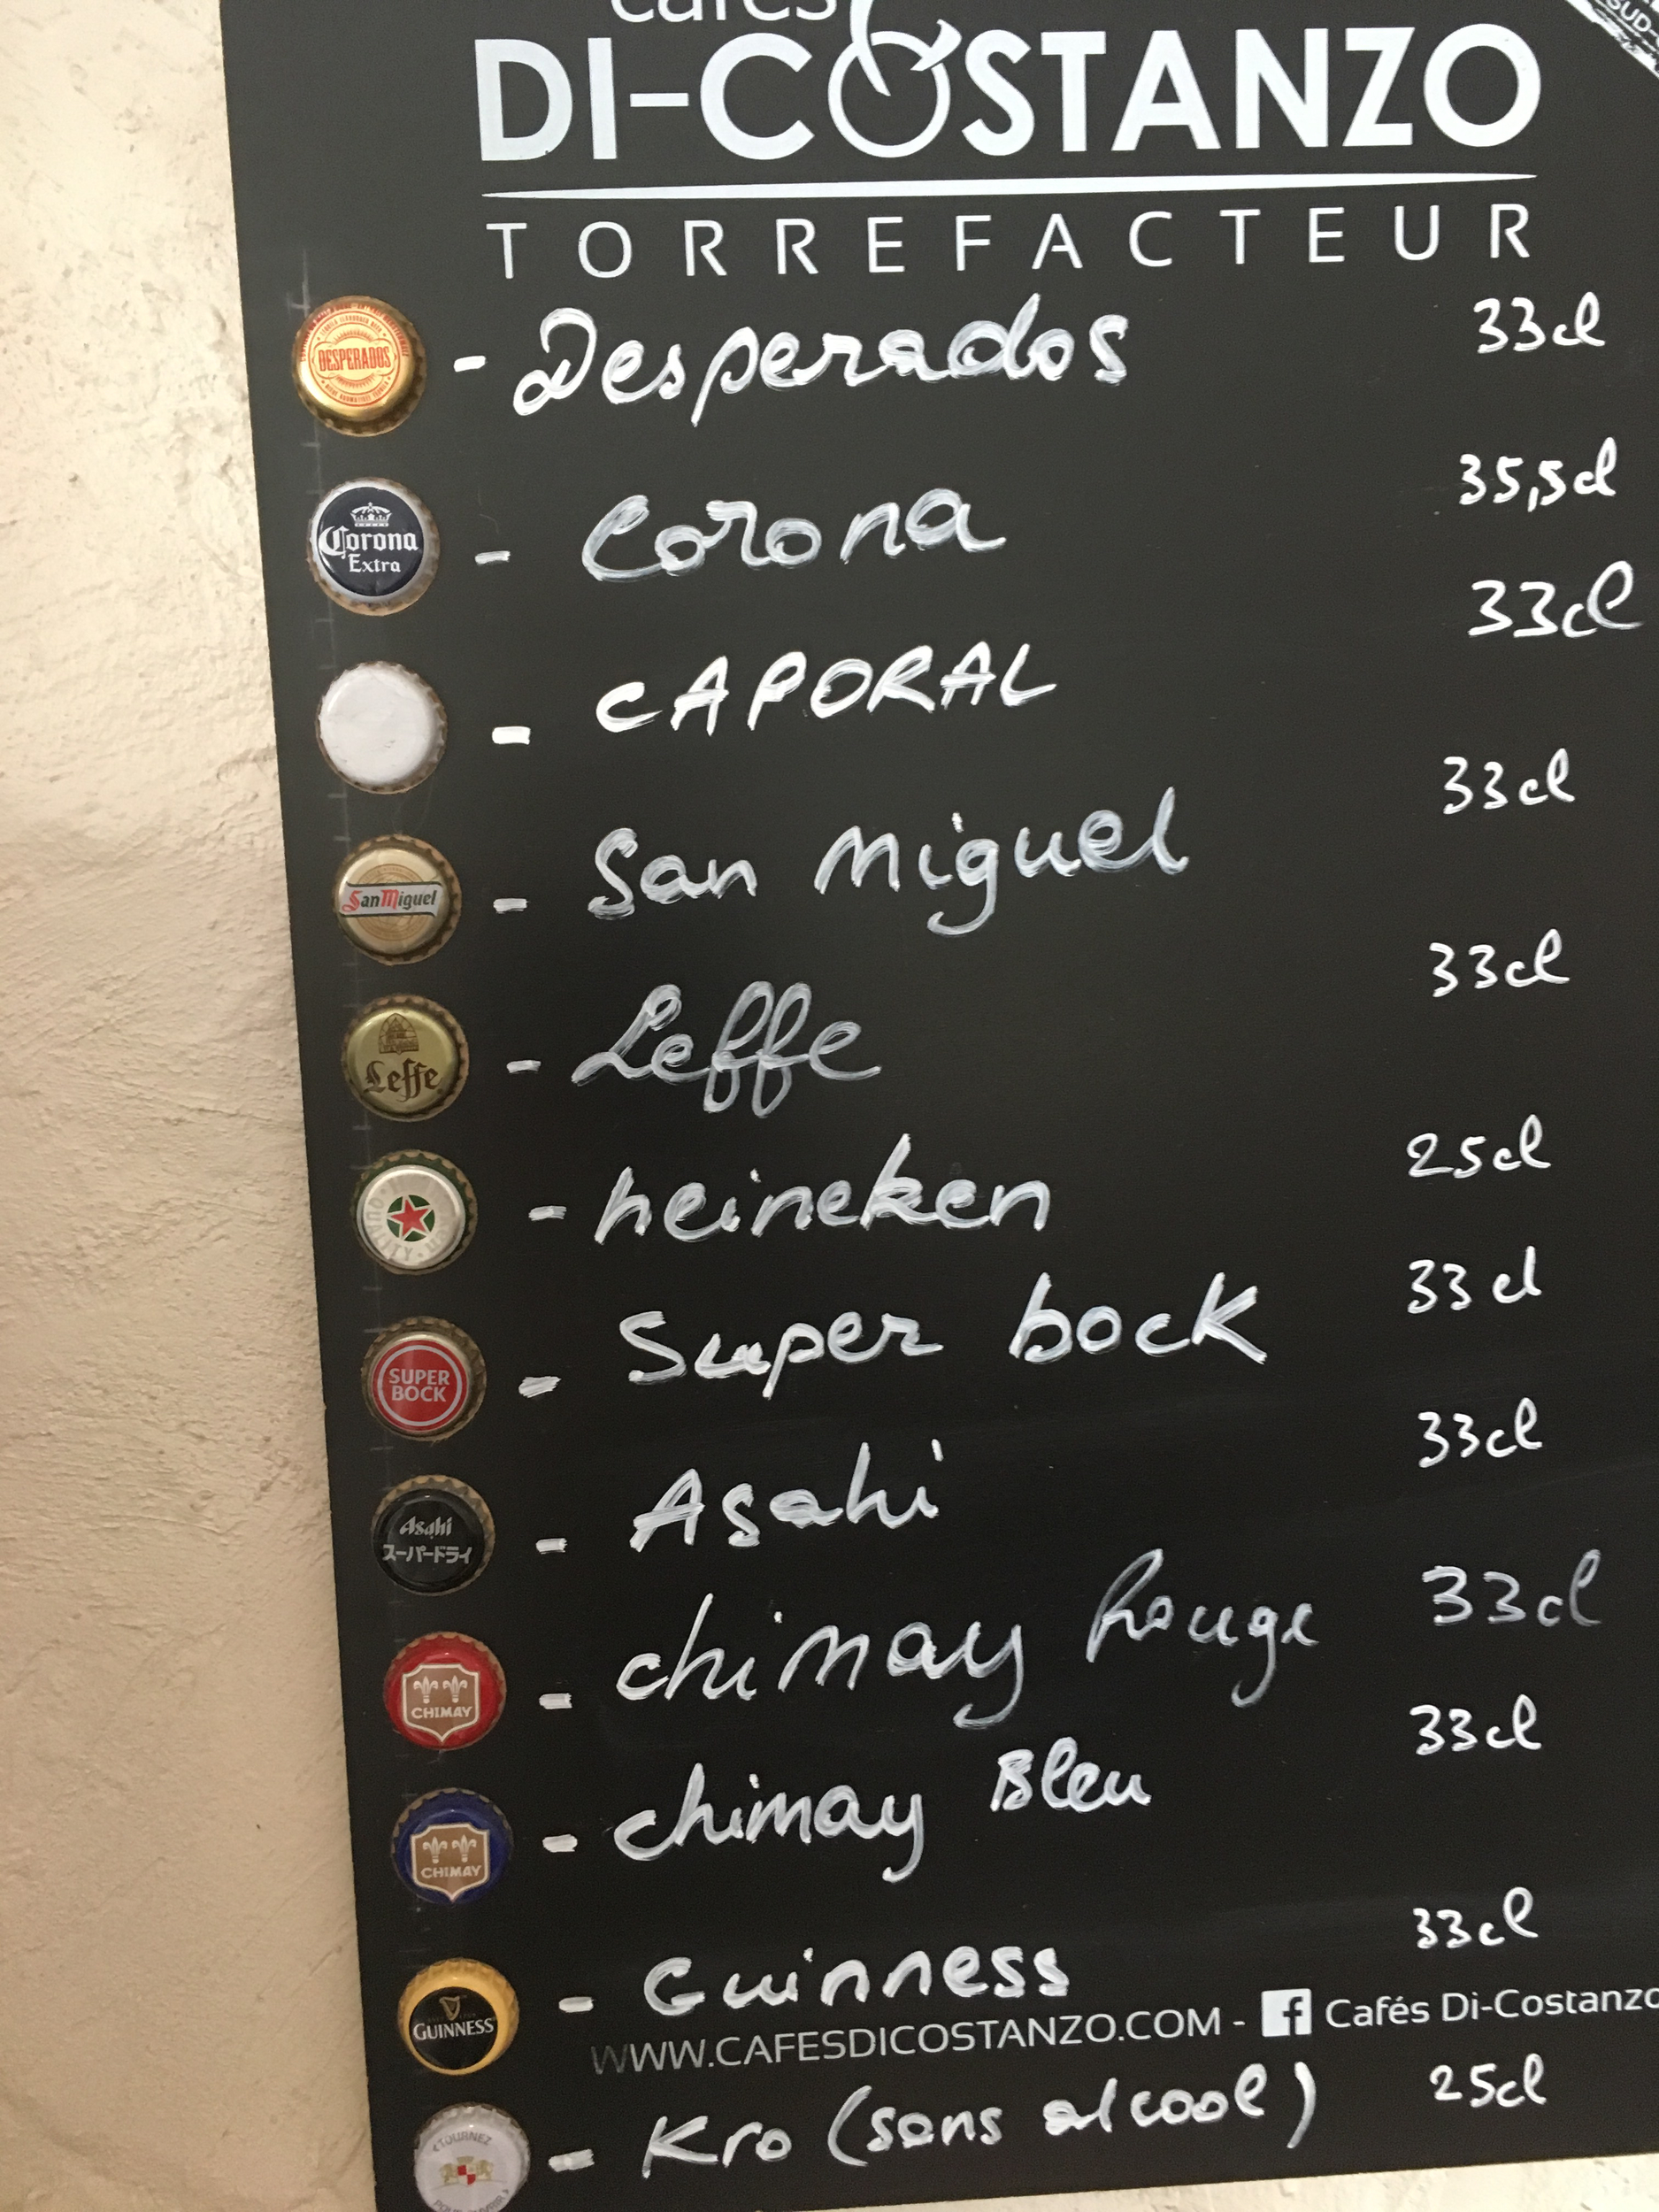 cafés
SUD
DI-COSTANZO
TORREFACTEUR
DESPERADOS - Desperados 33cl
Corona Extra - Corona 35,5cl
- CAPORAL 33cl
San Miguel - San Miguel 33cl
Leffe - Leffe 33cl
- heineken 25cl
SUPER BOCK - Super bock 33cl
Asahi スーパードライ - Asahi 33cl
CHIMAY - chimay Rouge 33cl
CHIMAY - chimay Bleu 33cl
GUINNESS - Guinness 33cl
WWW.CAFESDICOSTANZO.COM - f Cafés Di-Costanzo
TOURNEZ POUR OUVRIR - Kro (sans alcool) 25cl